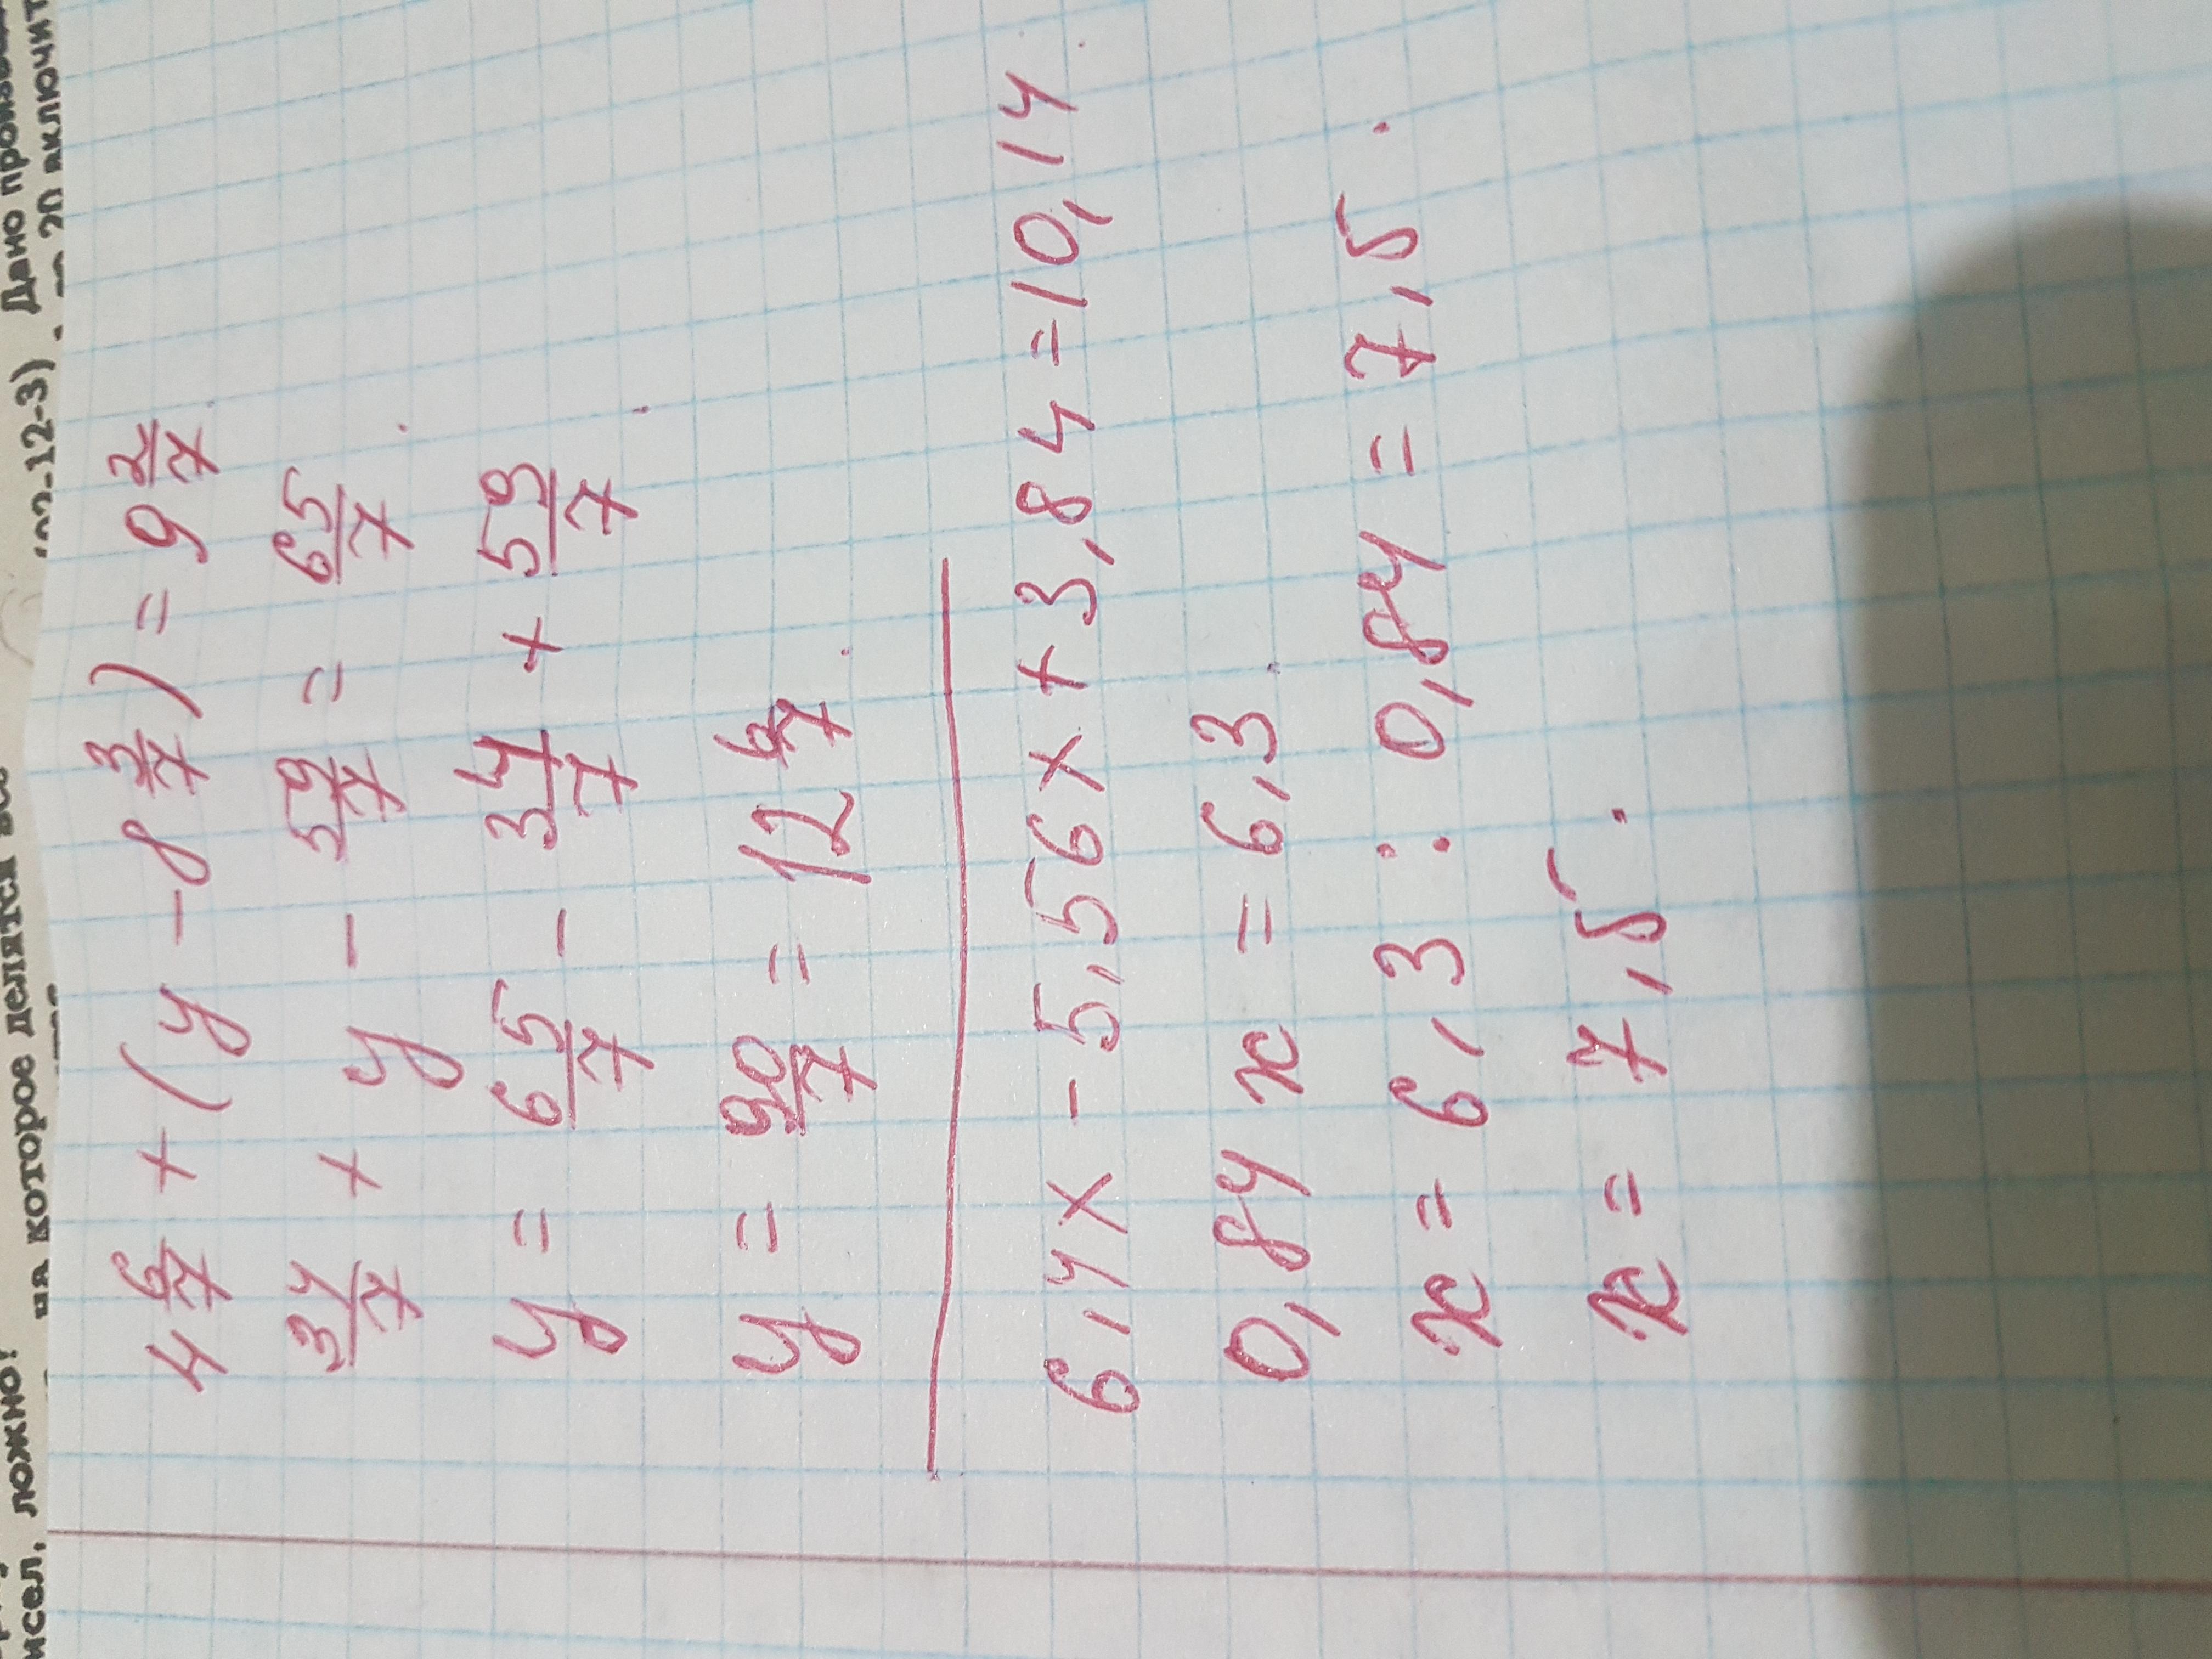 4 6/7 + (y - 8 3/7) = 9 2/7
34/7 + y - 59/7 = 65/7
y = 65/7 - 34/7 + 59/7
y = 90/7 = 12 6/7
6,4x - 5,56x + 3,84 = 10,14
0,84x = 6,3
x = 6,3 : 0,84 = 7,5
x = 7,5
исел, ложно!
на которое делятся все
(02-12-3) Дано
20 включит